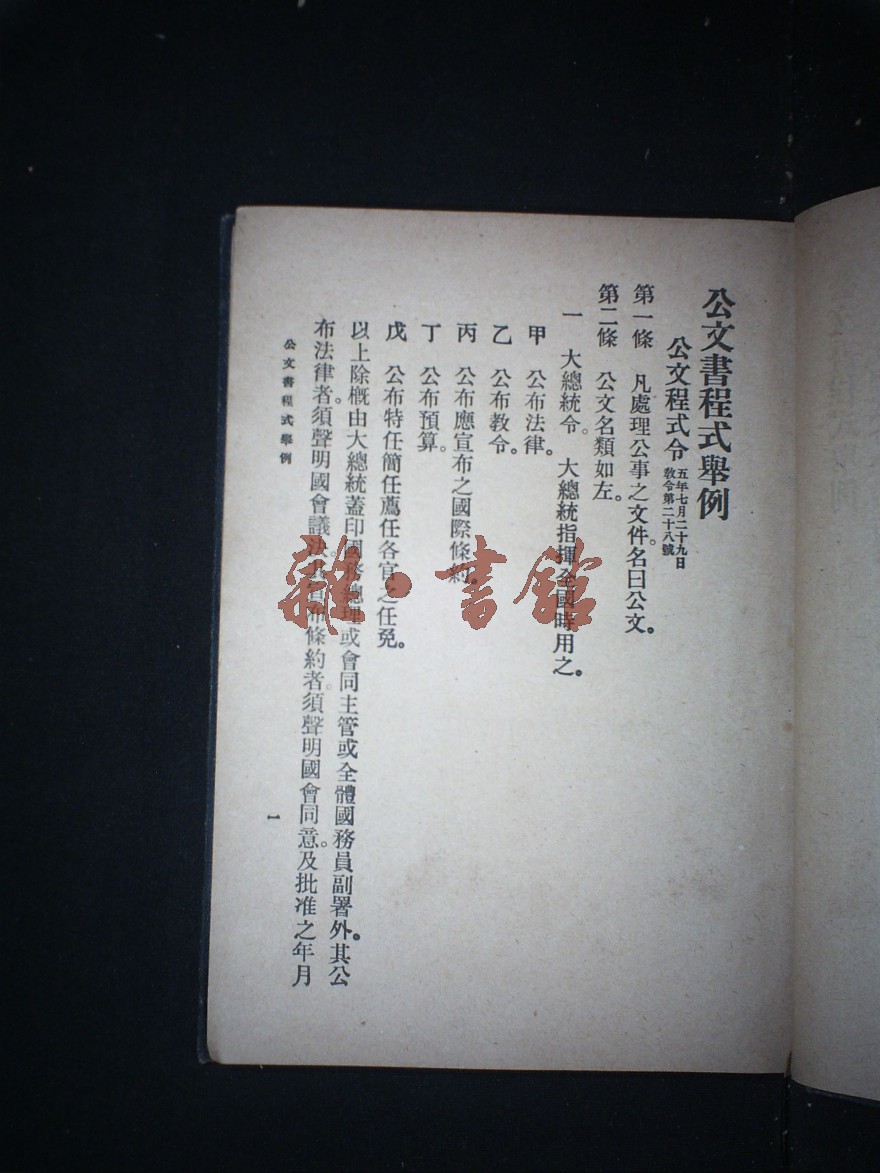 公文書程式舉例
公文程式令 五年七月二十九日
教令第二十八號
第一條 凡處理公事之文件。名曰公文。
第二條 公文名類如左。
一 大總統令。大總統指揮全國時用之。
甲 公布法律。
乙 公布教令。
丙 公布應宣布之國際條約。
丁 公布預算。
戊 公布特任簡任薦任各官之任免。
以上除概由大總統蓋印國務總理或會同主管或全體國務員副署外。其公
布法律者。須聲明國會議決。其公布條約者。須聲明國會同意。及批准之年月
公文書程式舉例
一
雜·書館